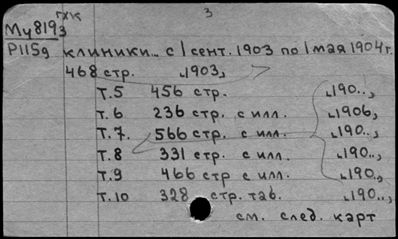 ГХК 3
Му8193
Р115g клиники... с 1 сент. 1903 по 1 мая 1904 г.
468 стр. „1903„
Т. 5 456 стр. „190..„
Т. 6 236 стр. с илл. „1906„
Т. 7. 566 стр. с илл. „190..„
Т. 8 331 стр. с илл. „190..„
Т. 9 466 стр с илл. „190..„
Т. 10 328 стр. таб. „190..„
см. след. карт